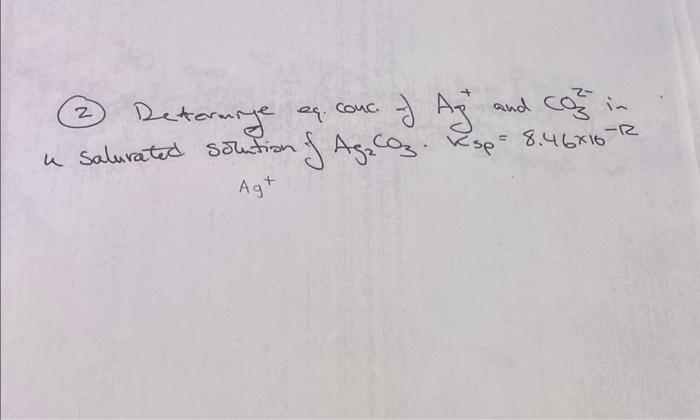 ② Determine eq. conc. of Ag⁺ and CO₃²⁻ in
a saturated solution of Ag₂CO₃. Ksp = 8.46×10⁻¹²
Ag⁺